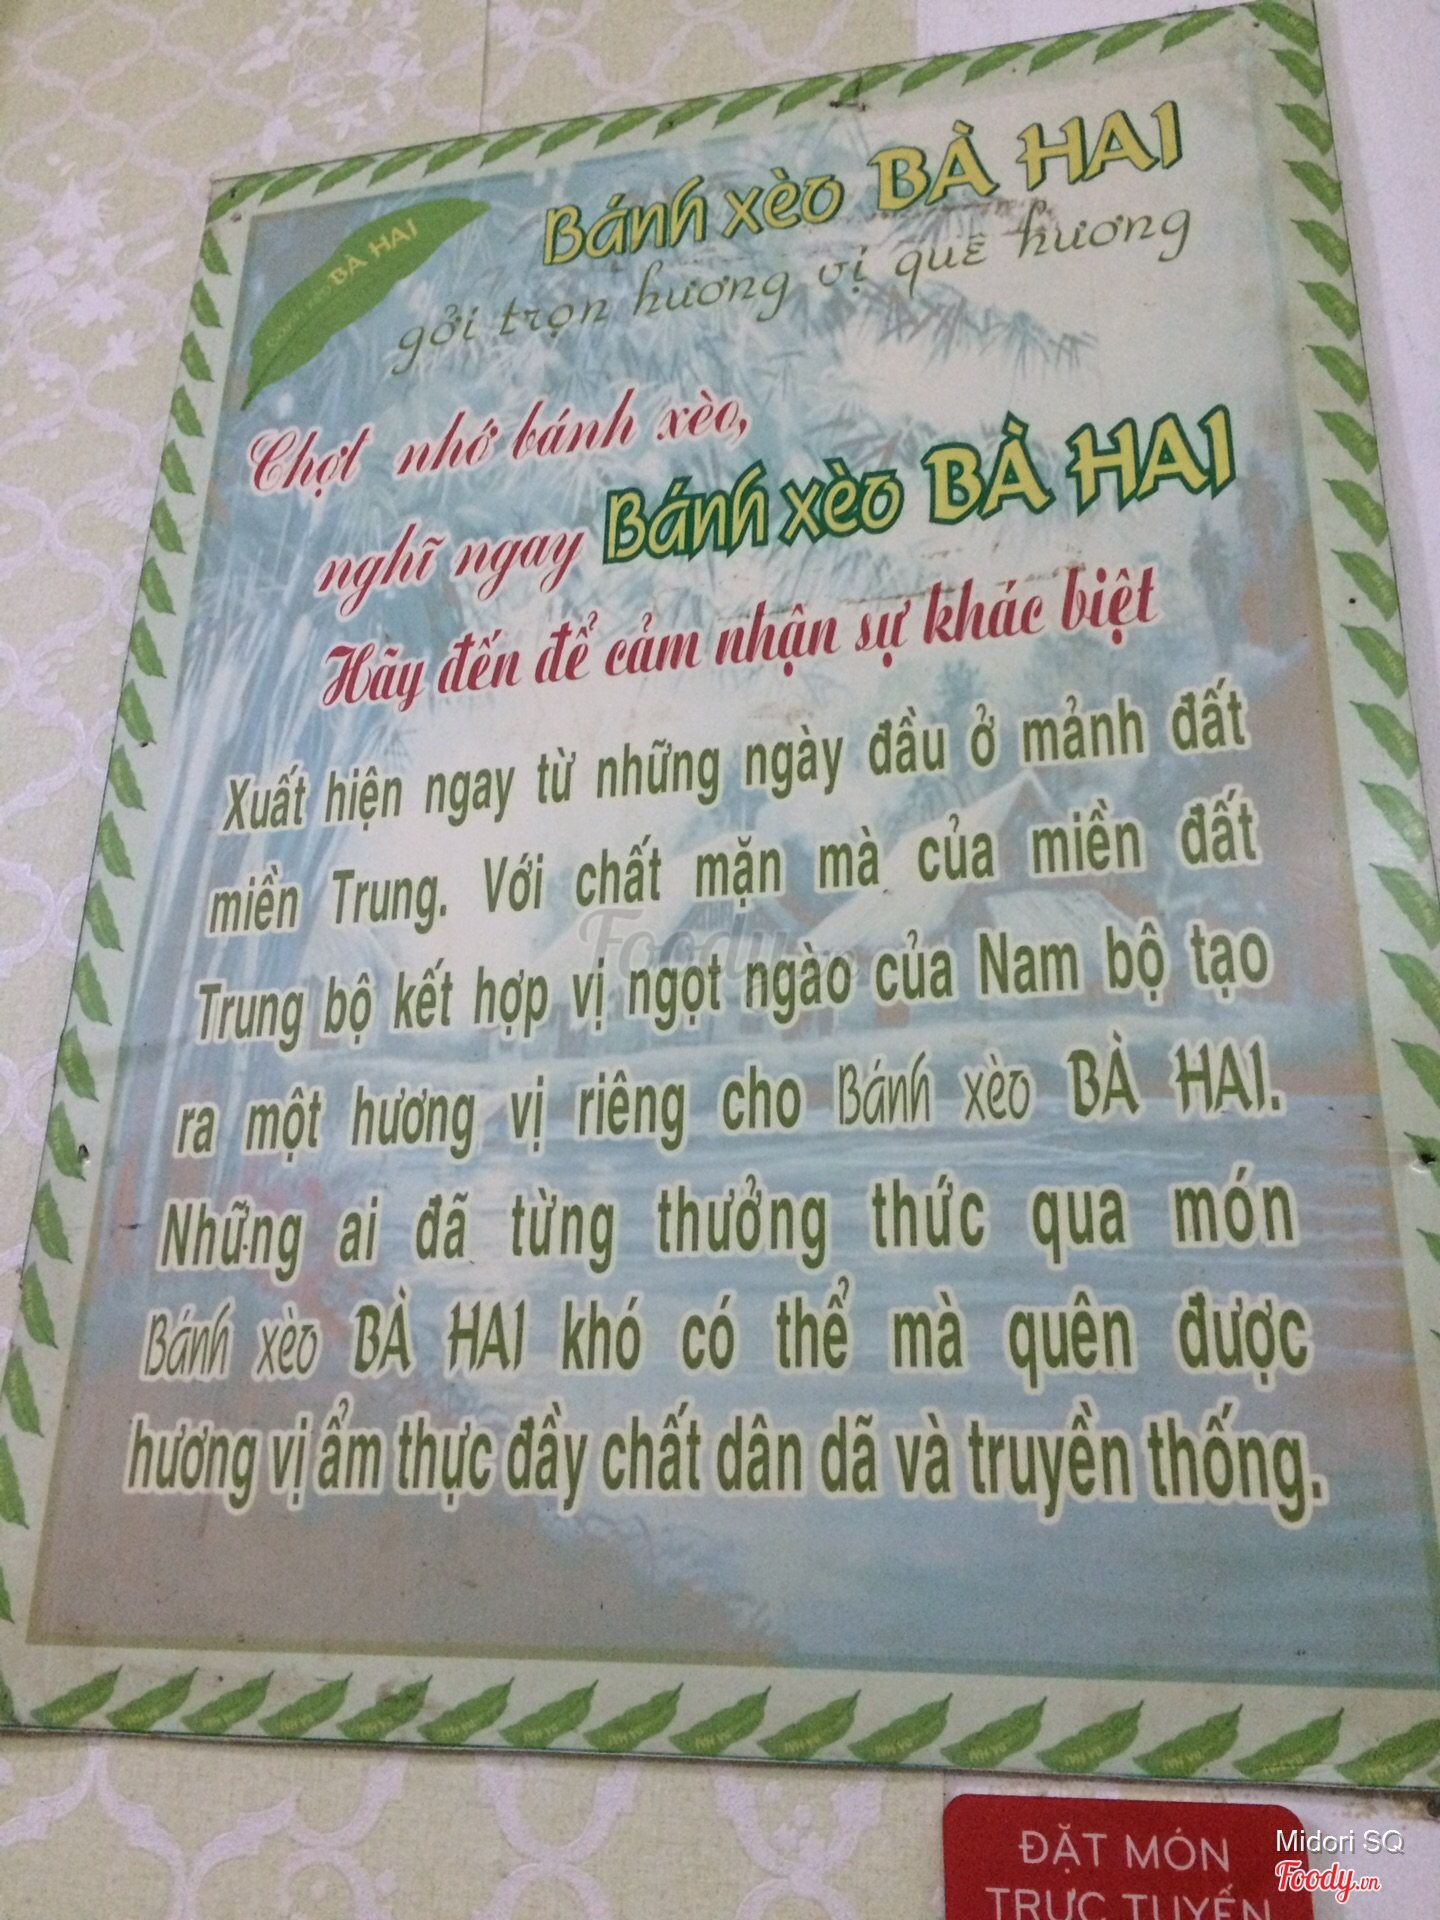 Bánh xèo BÀ HAI
gởi trọn hương vị quê hương
BÀ HAI
Chợt nhớ bánh xèo,
nghĩ ngay Bánh xèo BÀ HAI
Hãy đến để cảm nhận sự khác biệt
Xuất hiện ngay từ những ngày đầu ở mảnh đất
miền Trung. Với chất mặn mà của miền đất
Trung bộ kết hợp vị ngọt ngào của Nam bộ tạo
ra một hương vị riêng cho Bánh xèo BÀ HAI.
Những ai đã từng thưởng thức qua món
Bánh xèo BÀ HAI khó có thể mà quên được
hương vị ẩm thực đầy chất dân dã và truyền thống.
Foody.vn
ĐẶT MÓN
TRỰC TUYẾN
Midori SQ
Foody.vn